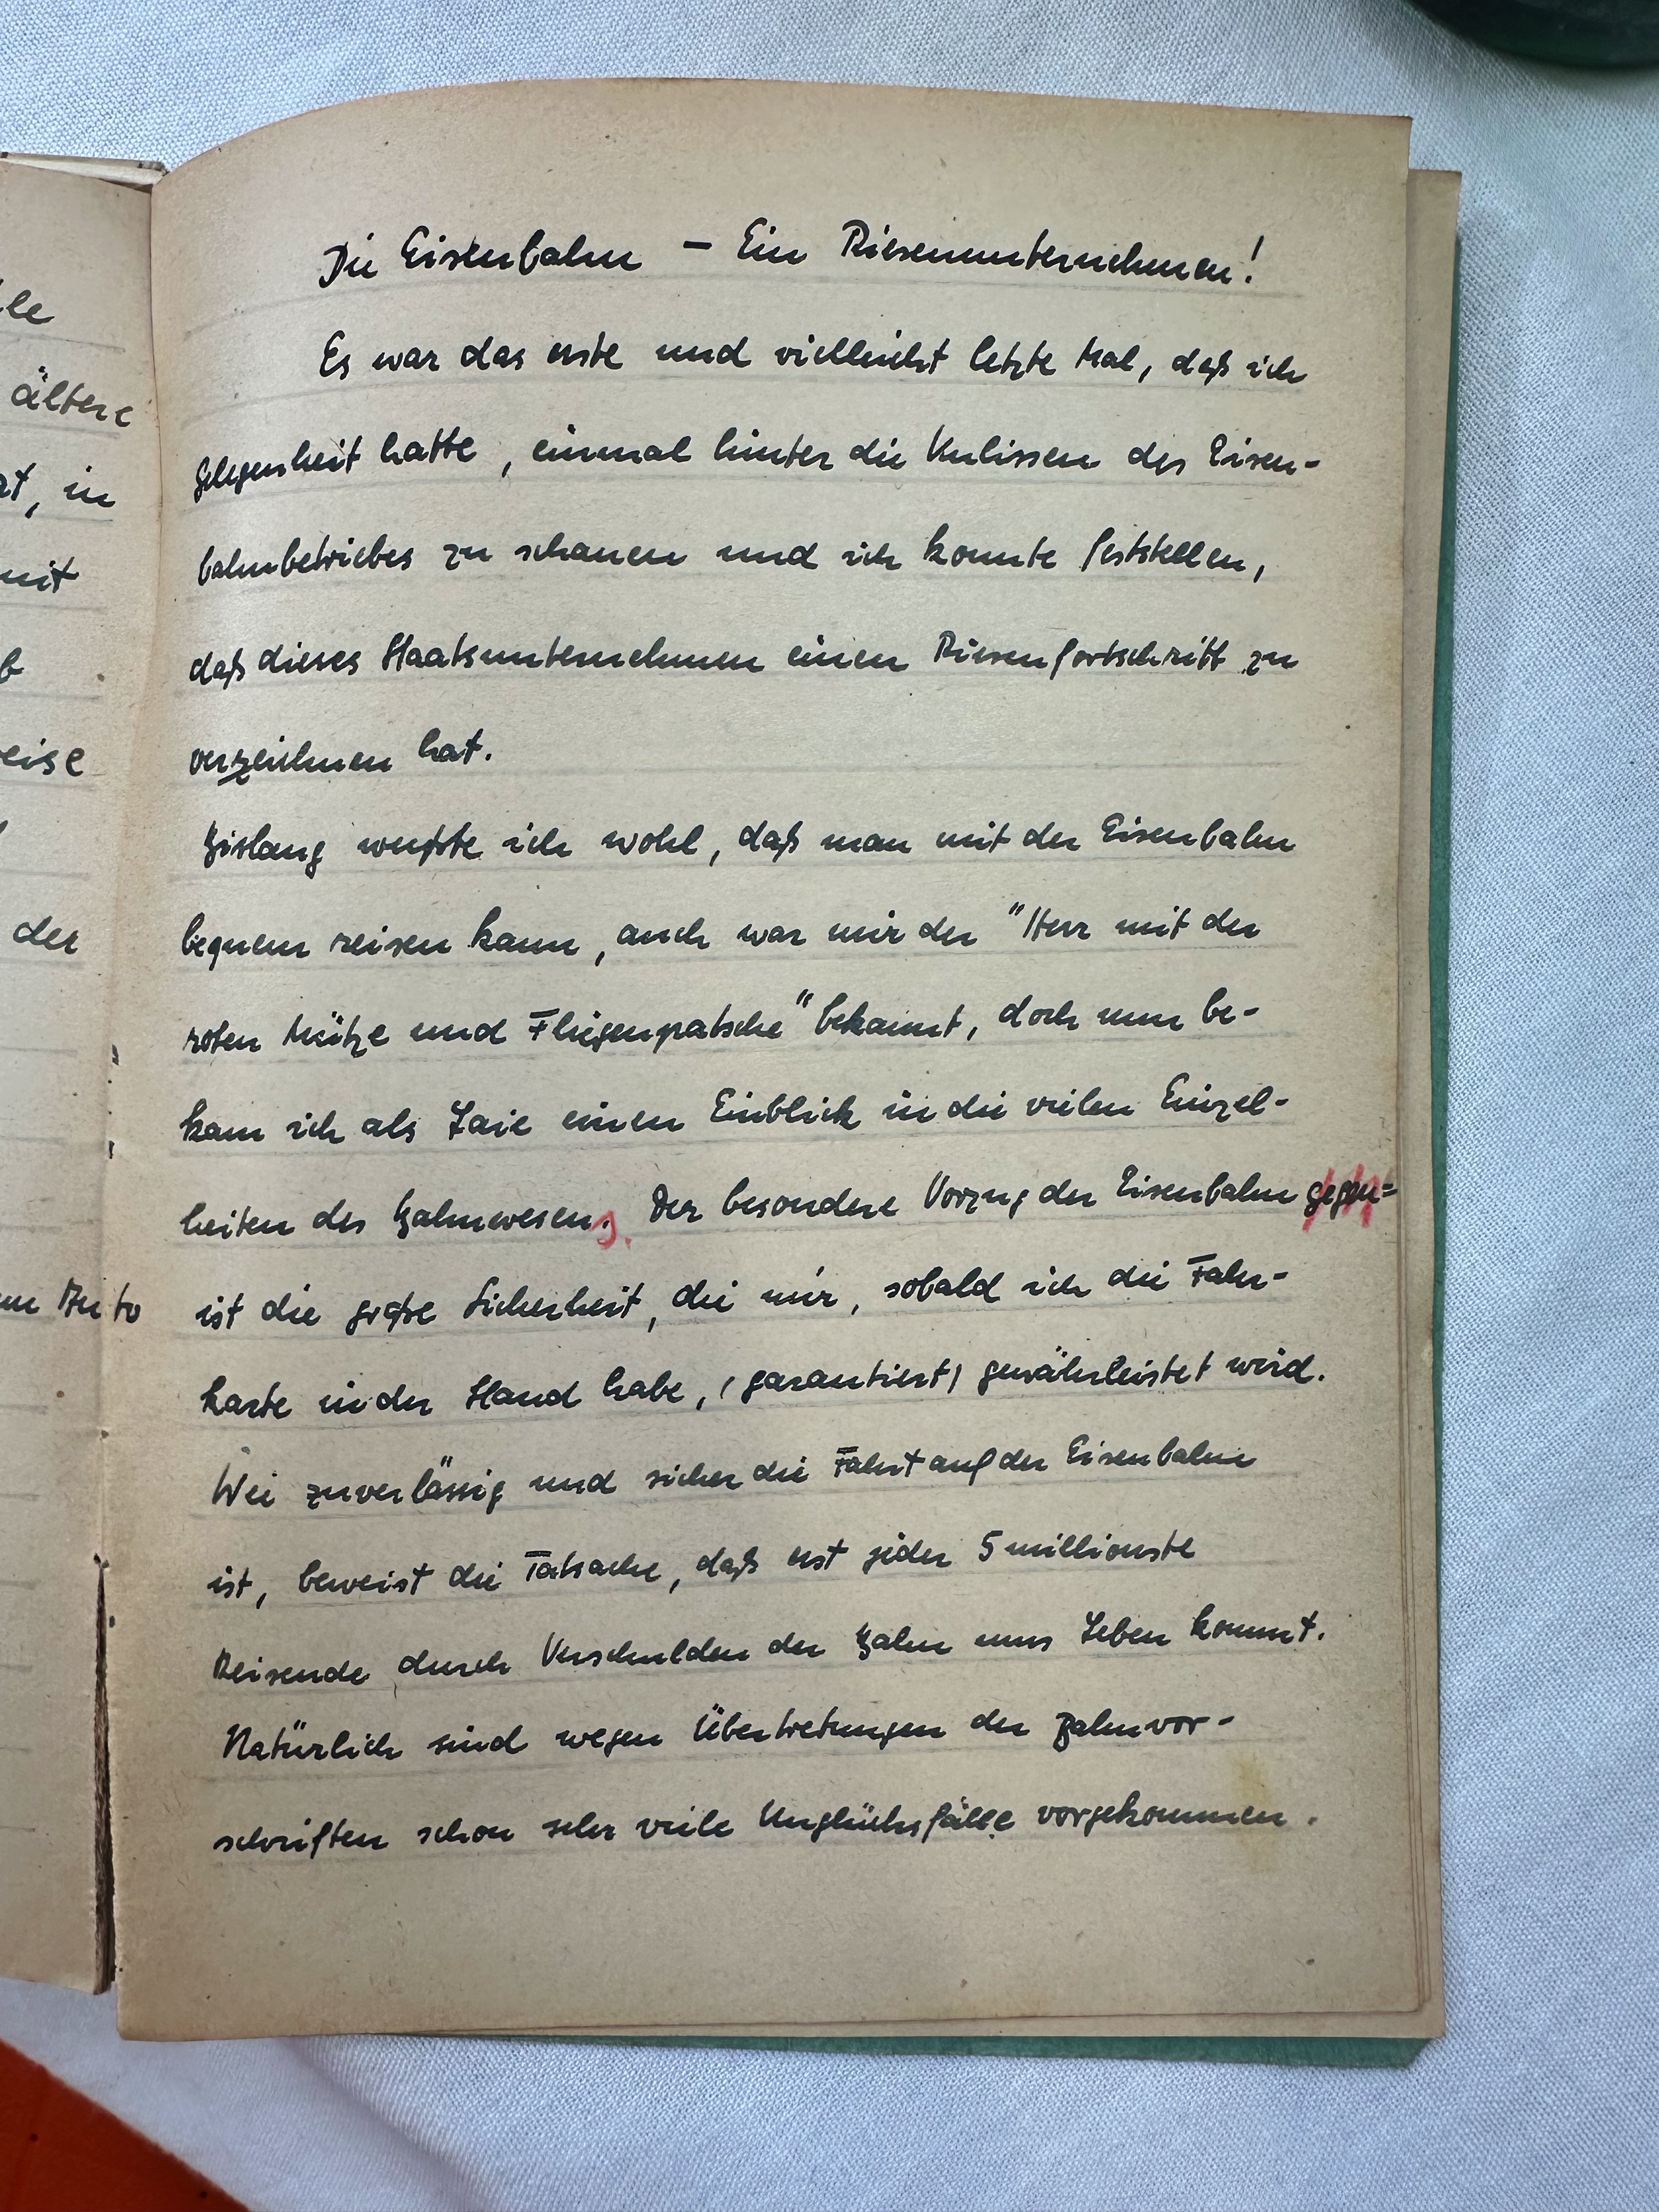 Die Eisenbahn – Ein Riesenunternehmen!
Es war das erste und vielleicht letzte Mal, daß ich
Gelegenheit hatte, einmal hinter die Kulissen des Eisen-
bahnbetriebes zu schauen und ich konnte feststellen,
daß dieses Staatsunternehmen einen Riesenfortschritt zu
verzeichnen hat.
Bislang wußte ich wohl, daß man mit der Eisenbahn
bequem reisen kann, auch war mir der "Herr mit der
roten Mütze und Fliegenpatsche" bekannt, doch nun be-
kam ich als Laie einen Einblick in die vielen Einzel-
heiten des Bahnwesens. Der besondere Vorzug der Eisenbahn gegen=
ist die große Sicherheit, die mir, sobald ich die Fahr-
karte in der Hand habe, (garantiert) gewährleistet wird.
Wei zuverlässig und sicher die Fahrt auf der Eisenbahn
ist, beweist die Tatsache, daß erst jeder 5 millionste
Reisende durch Verschulden der Bahn ums Leben kommt.
Natürlich sind wegen Übertretungen der Bahnvor-
schriften schon sehr viele Unglücksfälle vorgekommen.
le
ältere
at, in
mit
b
eise
der
Auto